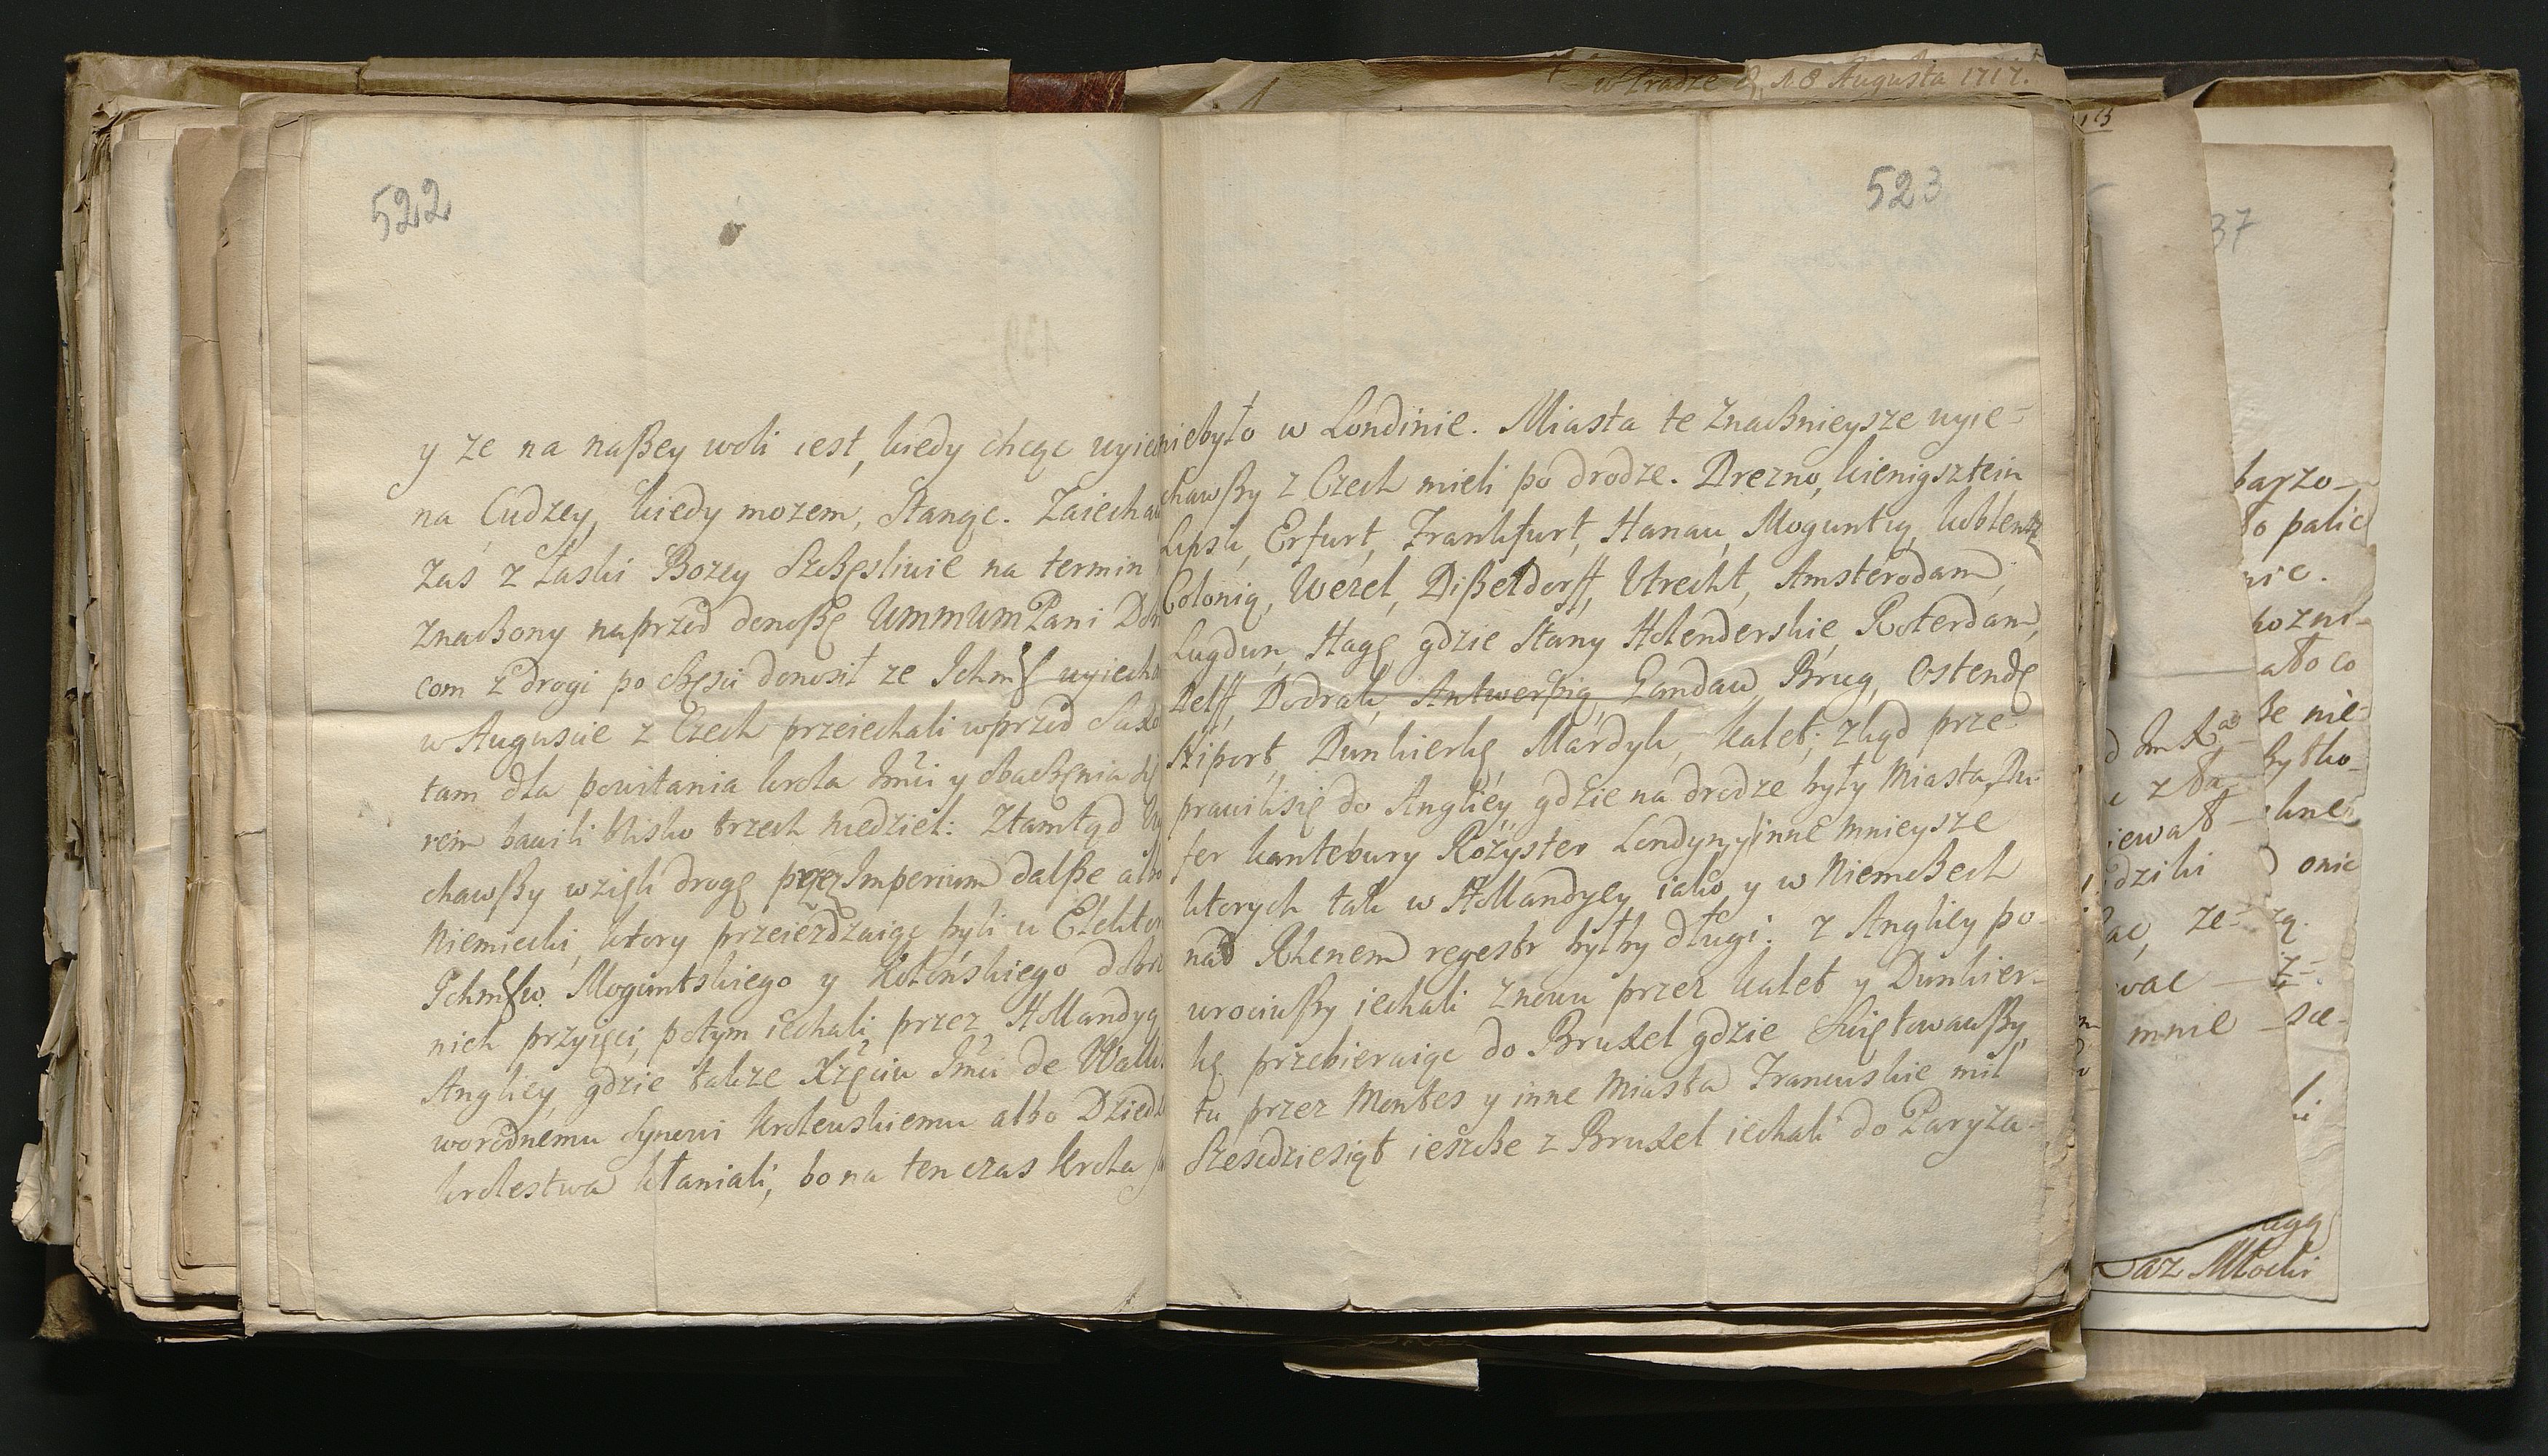 w Pradze d. 18 Augusta 1717.
522
y ze na naßey woli iest, kiedy chcąc wyie
na Cudzey, kiedy mozem, stanąc. Zaiecha
Zaś z Łaski Bozey Szczęsliwie na termin
znaczony naprzod donoszę WMMWM Pani Do
com z drogi po części donosił ze Ichm wyiech
w Auguscie z Czech przeiechali wprzod Saxo
tam dla powitania krola Jmći y obaczenia
rem bawili blisko trzech niedziel: Ztamtąd
chawszy wzięli drogę przez Imperium dalsze albo
Niemiecki, ktory przeiezdzaiąc byli u Elektor
Ichm Moguntskiego y Kolońskiego dobrze
nich przyięci, potym iechali przez Hollandyą
Angliey, gdzie takze Xzęciu Jmći de Walli
worodnemu Synowi krolewskiemu albo Dziedz
krolestwa kłaniali, bo na ten czas krola
523
niebyło w Londinie. Miasta te znacznieysze wyie-
chawszy z Czech mieli po drodze. Drezno, kienigsztein
Lipsk, Erfurt, Frankfurt, Hanau, Moguntią, kublentz
Colonią, Wezel, Dißeldorff, Utrecht, Amsterodam,
Lugdun, Hagę gdzie Stany Holenderskie, Roterdam,
Delff, Dodrak, Antwerpią, Gandaw, Brug, Ostendę
Niport, Dunkierkę, Mardyk, kalet; zkąd prze-
prawilisię do Angliey, gdzie na drodze były Miasta, Du-
fer kantebury Rożyster Londyn, y inne mnieysze
ktorych tak w Hollandyey iako y w Niemczech
nad Rhenem regestr byłby długi. z Angliey po-
wrociwszy iechali znowu przez kalet y Dunkier-
kę przebieraiąc do Bruxel gdzie Swiętowawszy,
tu przez Montes y inne Miasta Francuskie mil
Szescdziesiąt ieszcze z Bruxel iechali do Paryza
37
barzo-
to palic
nie.
ało co
nie-
kne
onic
mnie
Młocki